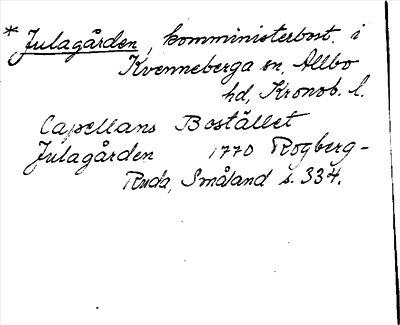 * Julagården, komministerbost. i
Kvenneberga sn, Allbo
hd, Kronob. l.
Capellans Bostället
Julagården 1770 Rogberg-
Ruda, Småland s. 334.